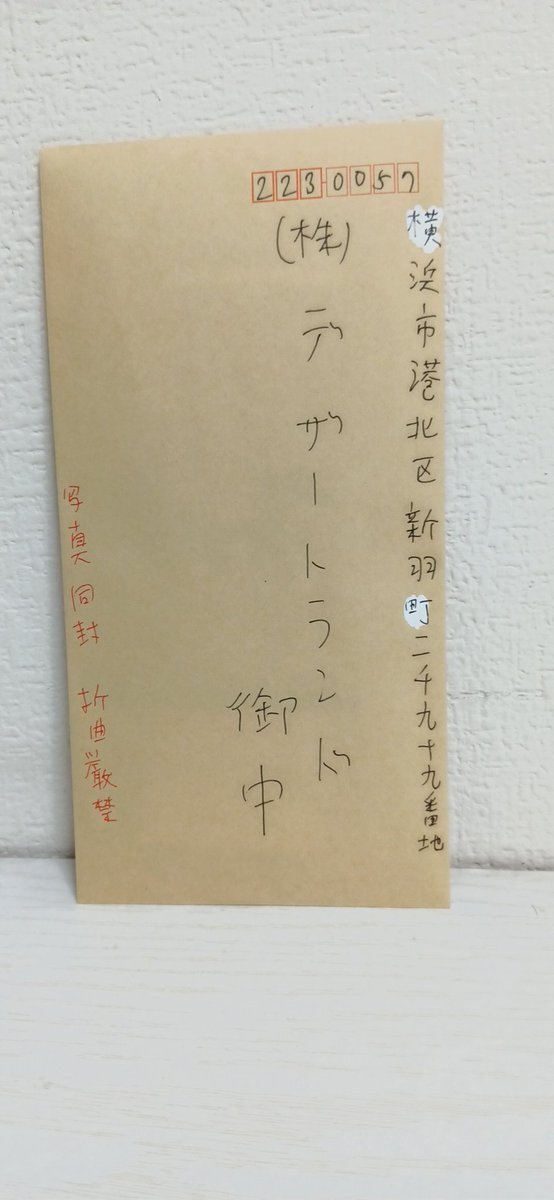 2230057
横浜市港北区新羽町二千九十九番地
(株)デザートランド
御中
写真同封 折曲厳禁